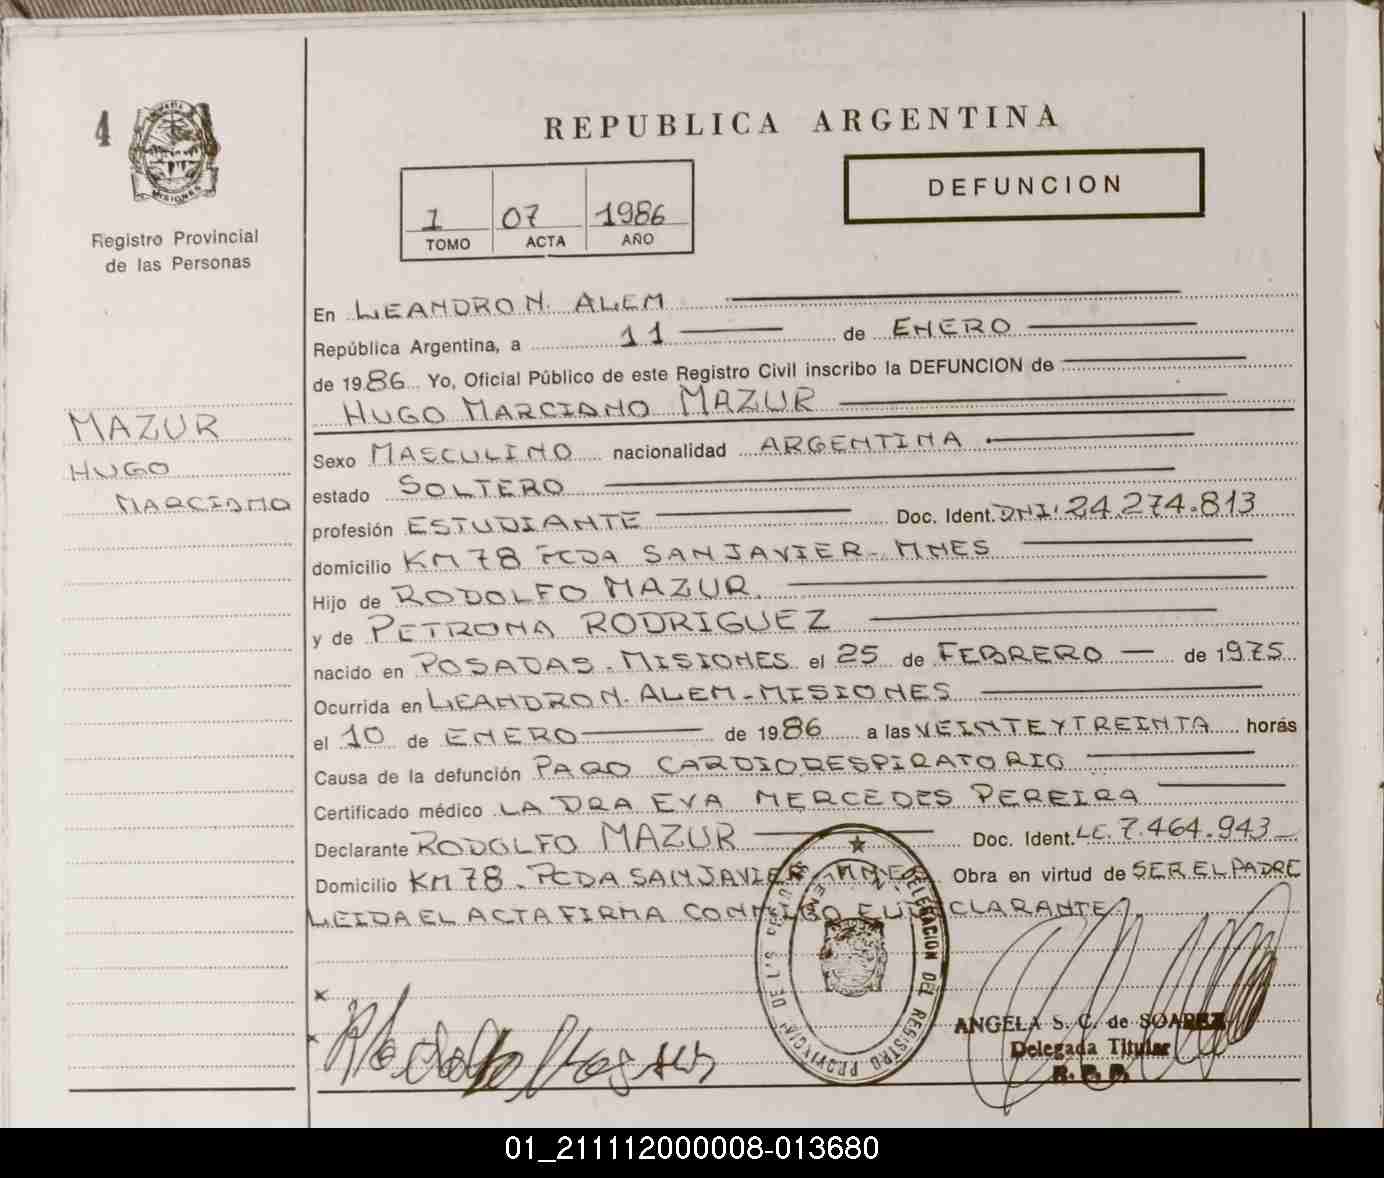 4
MISIONES
Registro Provincial
de las Personas
REPUBLICA ARGENTINA
DEFUNCION
1 07 1986
TOMO ACTA AÑO
En LEANDRO N. ALEM
República Argentina, a 11 de ENERO
de 1986 Yo, Oficial Público de este Registro Civil inscribo la DEFUNCION de
HUGO MARCIANO MAZUR
MAZUR
HUGO
MARCIANO
Sexo MASCULINO nacionalidad ARGENTINA
estado SOLTERO
profesión ESTUDIANTE Doc. Ident. DNI: 24.274.813
domicilio KM 78 PCDA SAN JAVIER - MNES
Hijo de RODOLFO MAZUR.
y de PETRONA RODRIGUEZ
nacido en POSADAS - MISIONES el 25 de FEBRERO de 1975
Ocurrida en LEANDRO N. ALEM - MISIONES
el 10 de ENERO de 1986 a las VEINTE Y TREINTA horás
Causa de la defunción PARO CARDIORESPIRATORIO
Certificado médico LA DRA EVA MERCEDES PEREIRA
Declarante RODOLFO MAZUR Doc. Ident. LE. 7.464.943
Domicilio KM 78 - PCDA SAN JAVIER - MNES Obra en virtud de SER EL PADRE
LEIDA EL ACTA FIRMA CONMIGO EL DECLARANTE
DELEGACION DEL REGISTRO PROVINCIAL DE LAS
ANGELA S. C. de SOAREZ
Delegada Titular
R. P. P.
01_211112000008-013680